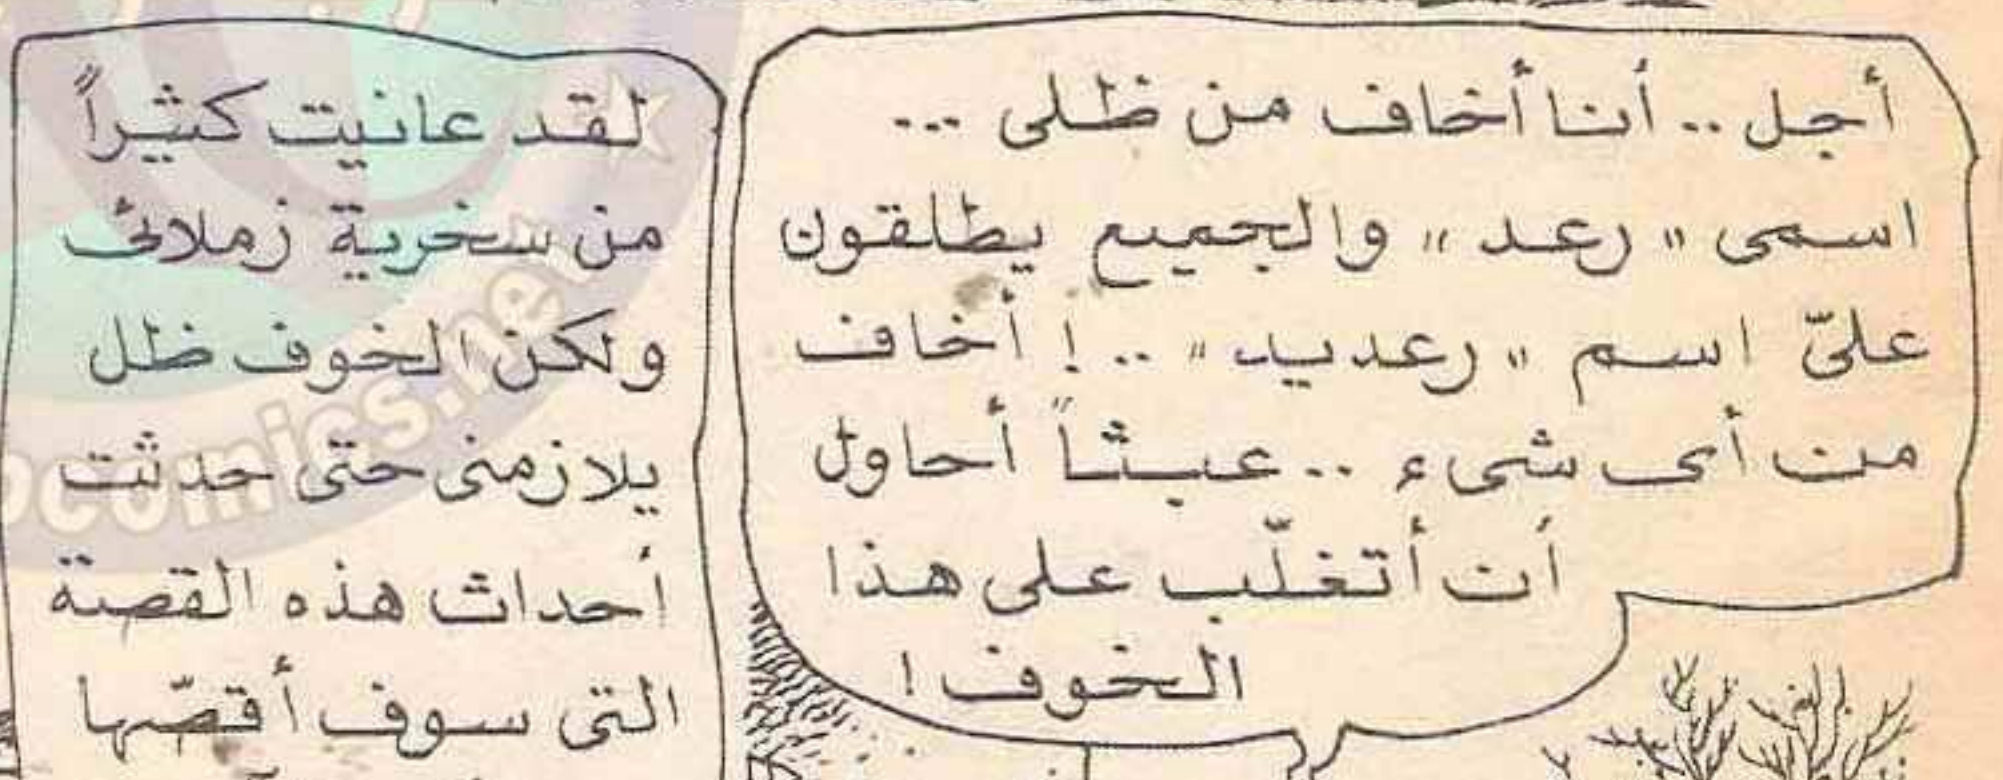 أجل .. أنا أخاف من ظلى ...
اسمى " رعد " والجميع يطلقون
علىّ اسم " رعديد " .. ! أخاف
من أى شىء .. عبثاً أحاول
أن أتغلّب على هذا
الخوف !
لقد عانيت كثيراً
من سخرية زملائى
ولكن الخوف ظل
يلازمنى حتى حدثت
أحداث هذه القصة
التى سوف أقصّها